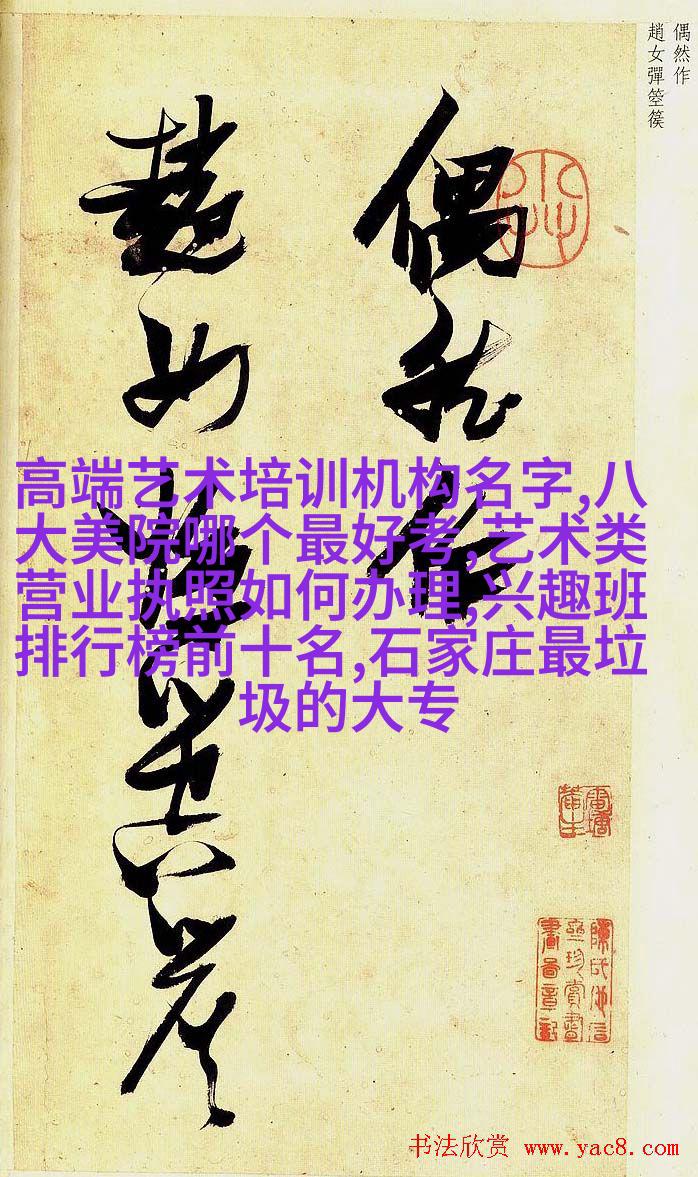 偶然作
趙女彈箜篌
偶然作
趙女彈箜篌
高端艺术培训机构名字,八
大美院哪个最好考,艺术类
营业执照如何办理,兴趣班
排行榜前十名,石家庄最垃
圾的大专
书法欣赏 www.yac8.com